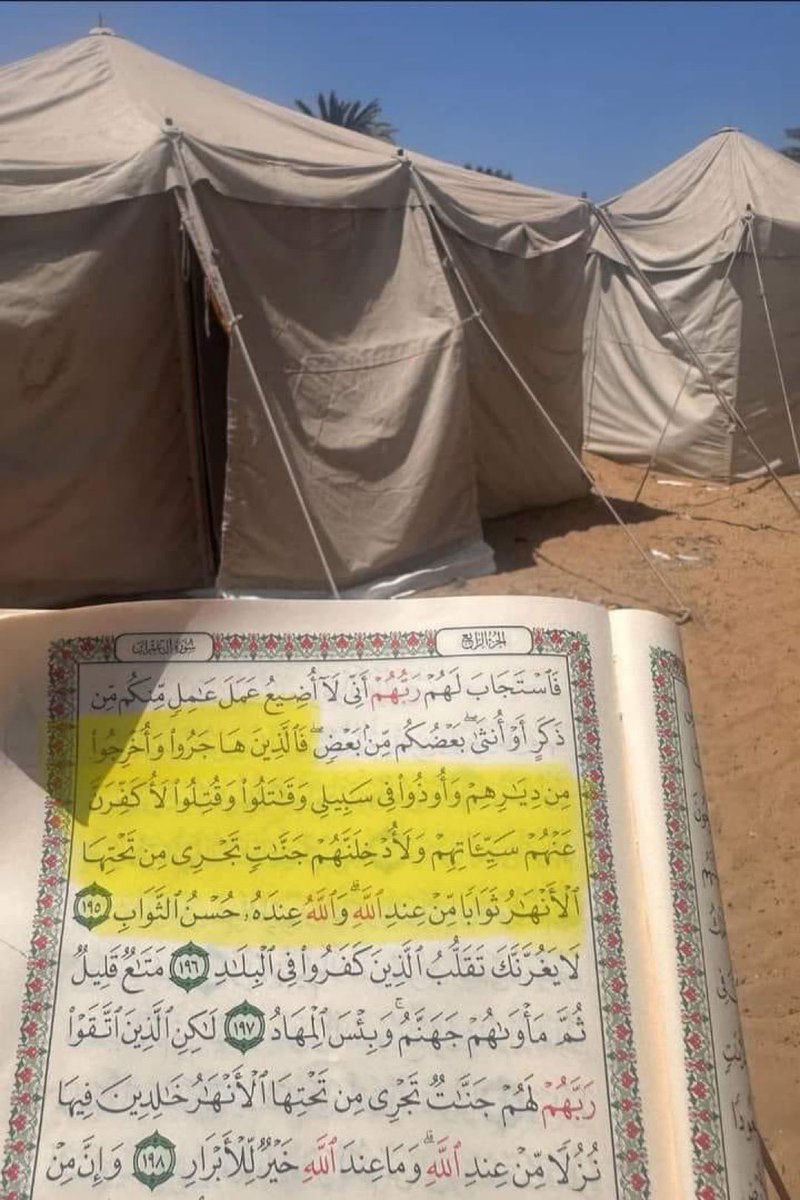 الجزء الرابع
سورة آل عمران
فَٱسۡتَجَابَ لَهُمۡ رَبُّهُمۡ أَنِّي لَآ أُضِيعُ عَمَلَ عَٰمِلٖ مِّنكُم مِّن
ذَكَرٍ أَوۡ أُنثَىٰۖ بَعۡضُكُم مِّنۢ بَعۡضٖۖ فَٱلَّذِينَ هَاجَرُواْ وَأُخۡرِجُواْ
مِن دِيَٰرِهِمۡ وَأُوذُواْ فِي سَبِيلِي وَقَٰتَلُواْ وَقُتِلُواْ لَأُكَفِّرَنَّ
عَنۡهُمۡ سَيِّـَٔاتِهِمۡ وَلَأُدۡخِلَنَّهُمۡ جَنَّٰتٖ تَجۡرِي مِن تَحۡتِهَا
ٱلۡأَنۡهَٰرُ ثَوَابٗا مِّنۡ عِندِ ٱللَّهِۗ وَٱللَّهُ عِندَهُۥ حُسۡنُ ٱلثَّوَابِ ١٩٥
لَا يَغُرَّنَّكَ تَقَلُّبُ ٱلَّذِينَ كَفَرُواْ فِي ٱلۡبِلَٰدِ ١٩٦ مَتَٰعٞ قَلِيلٞ
ثُمَّ مَأۡوَىٰهُمۡ جَهَنَّمُۖ وَبِئۡسَ ٱلۡمِهَادُ ١٩٧ لَٰكِنِ ٱلَّذِينَ ٱتَّقَوۡاْ
رَبَّهُمۡ لَهُمۡ جَنَّٰتٞ تَجۡرِي مِن تَحۡتِهَا ٱلۡأَنۡهَٰرُ خَٰلِدِينَ فِيهَا
نُزُلٗا مِّنۡ عِندِ ٱللَّهِۗ وَمَا عِندَ ٱللَّهِ خَيۡرٞ لِّلۡأَبۡرَارِ ١٩٨ وَإِنَّ مِنۡ